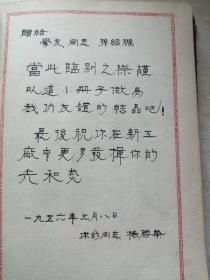 贈給
學友 同志 孫紹鵬
當此臨别之際謹
以這小册子做為
我们友誼的結晶吧!
最後祝你在新工
廠中更多發揮你的
光和热
一九五六年三月八日
你的同志 楊勝榮